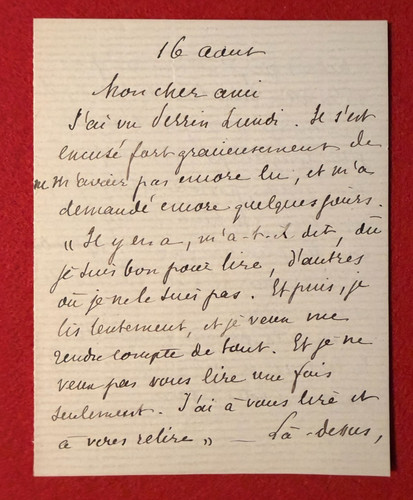 16 aout
Mon cher ami
J'ai vu Perrin Lundi. Il s'est
excusé fort gracieusement de
ne m'avoir pas encore lu, et m'a
demandé encore quelques jours.
" Il y en a, m'a-t-il dit, où
je suis bon pour lire, d'autres
où je ne le suis pas. Et puis, je
lis lentement, et je veux me
rendre compte de tout. Et je ne
veux pas vous lire une fois
seulement. J'ai à vous lire et
à vous relire " — Là-dessus,